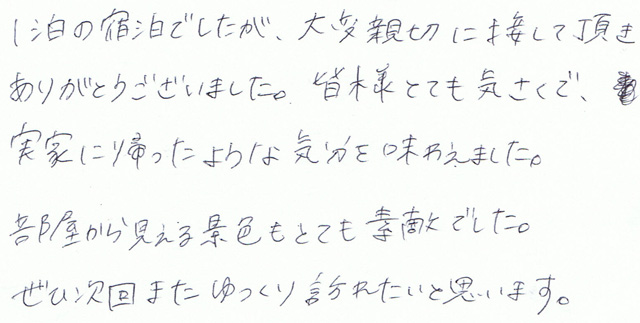 1泊の宿泊でしたが、大変親切に接して頂き
ありがとうございました。皆様とても気さくで、
実家に帰ったような気分を味わえました。
部屋から見える景色もとても素敵でした。
ぜひ次回またゆっくり訪れたいと思います。